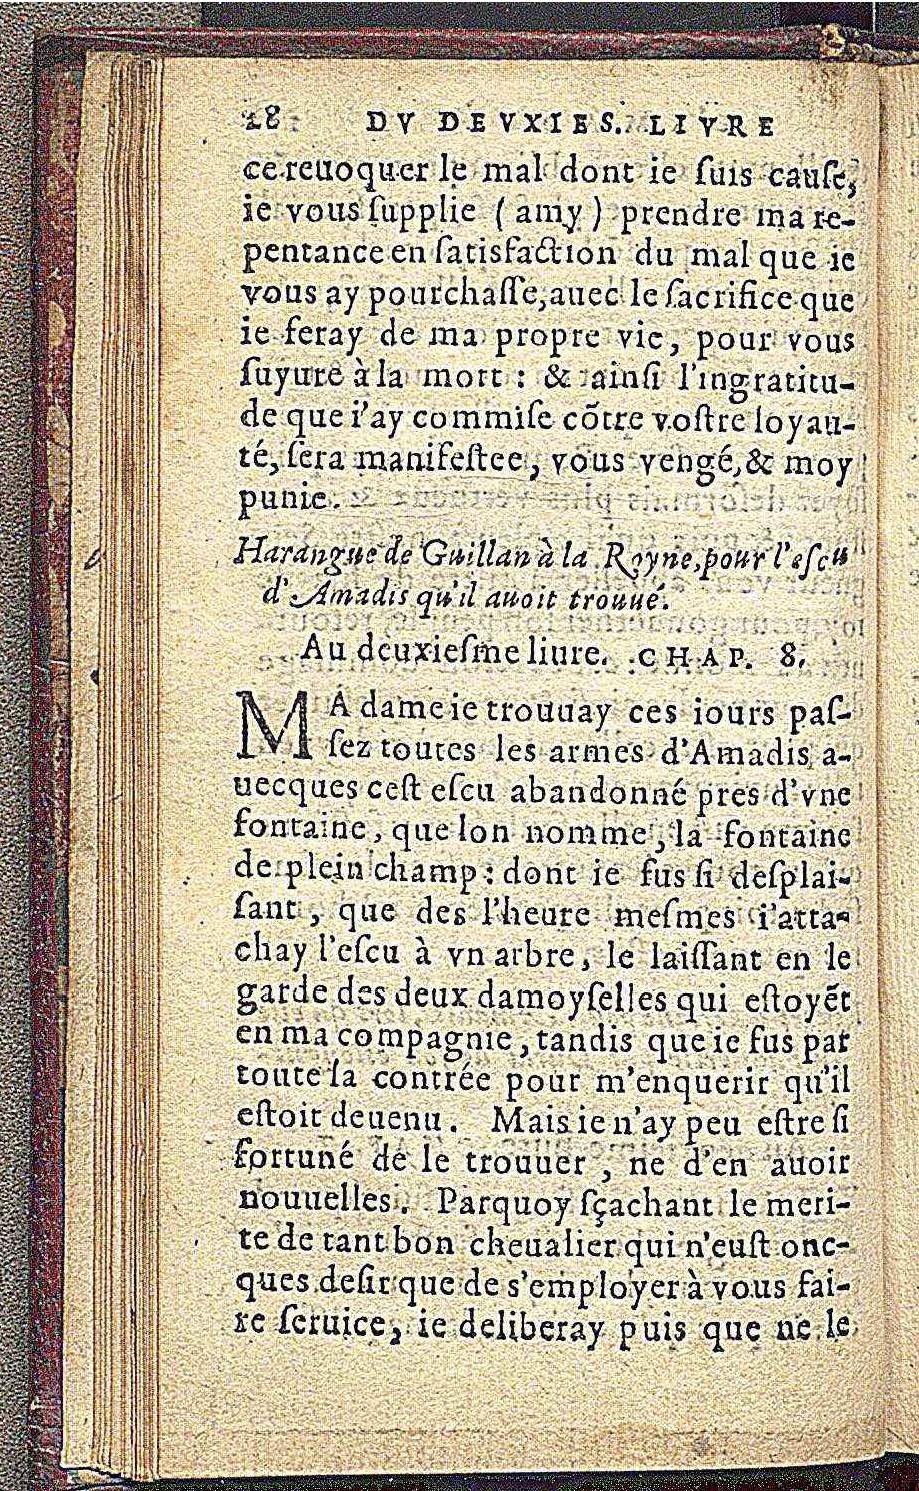 28 DV DEVXIES. LIVRE
ce reuoquer le mal dont ie ſuis cauſe,
ie vous ſupplie (amy) prendre ma re-
pentance en ſatisfaction du mal que ie
vous ay pourchaſſe, auec le ſacrifice que
ie feray de ma propre vie, pour vous
ſuyure à la mort : & ainſi l'ingratitu-
de que i'ay commiſe cõtre voſtre loyau-
té, ſera manifeſtee, vous vengé, & moy
punie.
Harangue de Guillan à la Royne, pour l'eſcu
d'Amadis qu'il auoit trouué.
Au deuxieſme liure. CHAP. 8.
MA dame ie trouuay ces iours paſ-
ſez toutes les armes d'Amadis, a-
uecques ceſt eſcu abandonné pres d'vne
fontaine, que lon nomme, la fontaine
de plein champ : dont ie fus ſi deſplai-
ſant, que des l'heure meſmes i'atta-
chay l'eſcu à vn arbre, le laiſſant en le
garde des deux damoyſelles qui eſtoyẽt
en ma compagnie, tandis que ie fus par
toute la contrée pour m'enquerir qu'il
eſtoit deuenu. Mais ie n'ay peu eſtre ſi
fortuné de le trouuer, ne d'en auoir
nouuelles. Parquoy ſçachant le meri-
te de tant bon cheualier qui n'euſt onc-
ques deſir que de s'employer à vous fai-
re ſeruice, ie deliberay puis que ne le